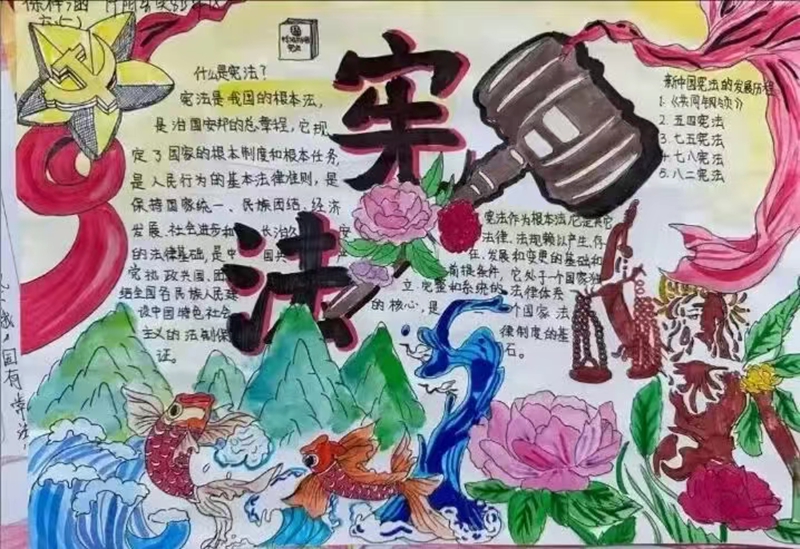 六(二)
宪法
什么是宪法?
宪法是我国的根本法,
是治国安邦的总章程,它规
定了国家的根本制度和根本任务,
是人民行为的基本法律准则,是
保持国家统一、民族团结、经济
发展、社会进步和 长治久
的法律基础,是中国共
党执政兴国、团
结全国各民族人民建
设中国特色社会
主义的法制保
证。
新中国宪法的发展历程
1.《共同纲领》
2.五四宪法
3.七五宪法
4.七八宪法
5.八二宪法
宪法作为根本法,它是其它
法律、法规赖以产生、存
在、发展和变更的基础和
前提条件,它处于一个国家独
立、完整和系统的法律体系
的核心,是一个国家法
律制度的基
石。